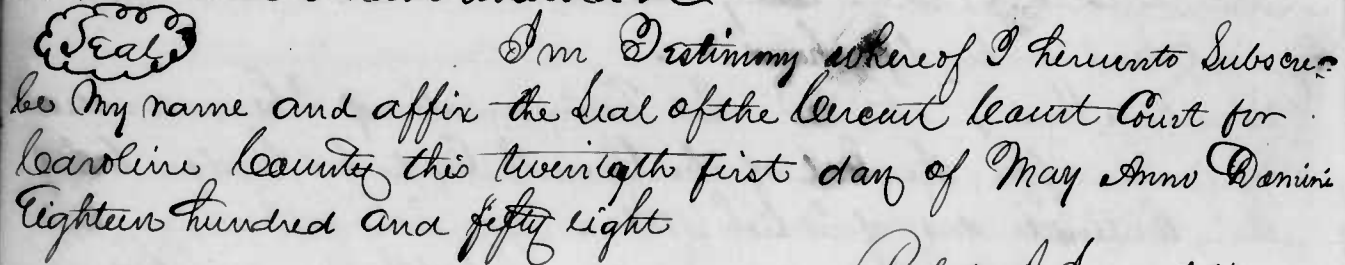 Seal
Im Testimony whereof I hereunto Subscre=
be My name and affix the Seal of the Cercuit Court Court for
Caroline County this twentyth first day of May Anno Domini
Eighteen hundred and fifty eight